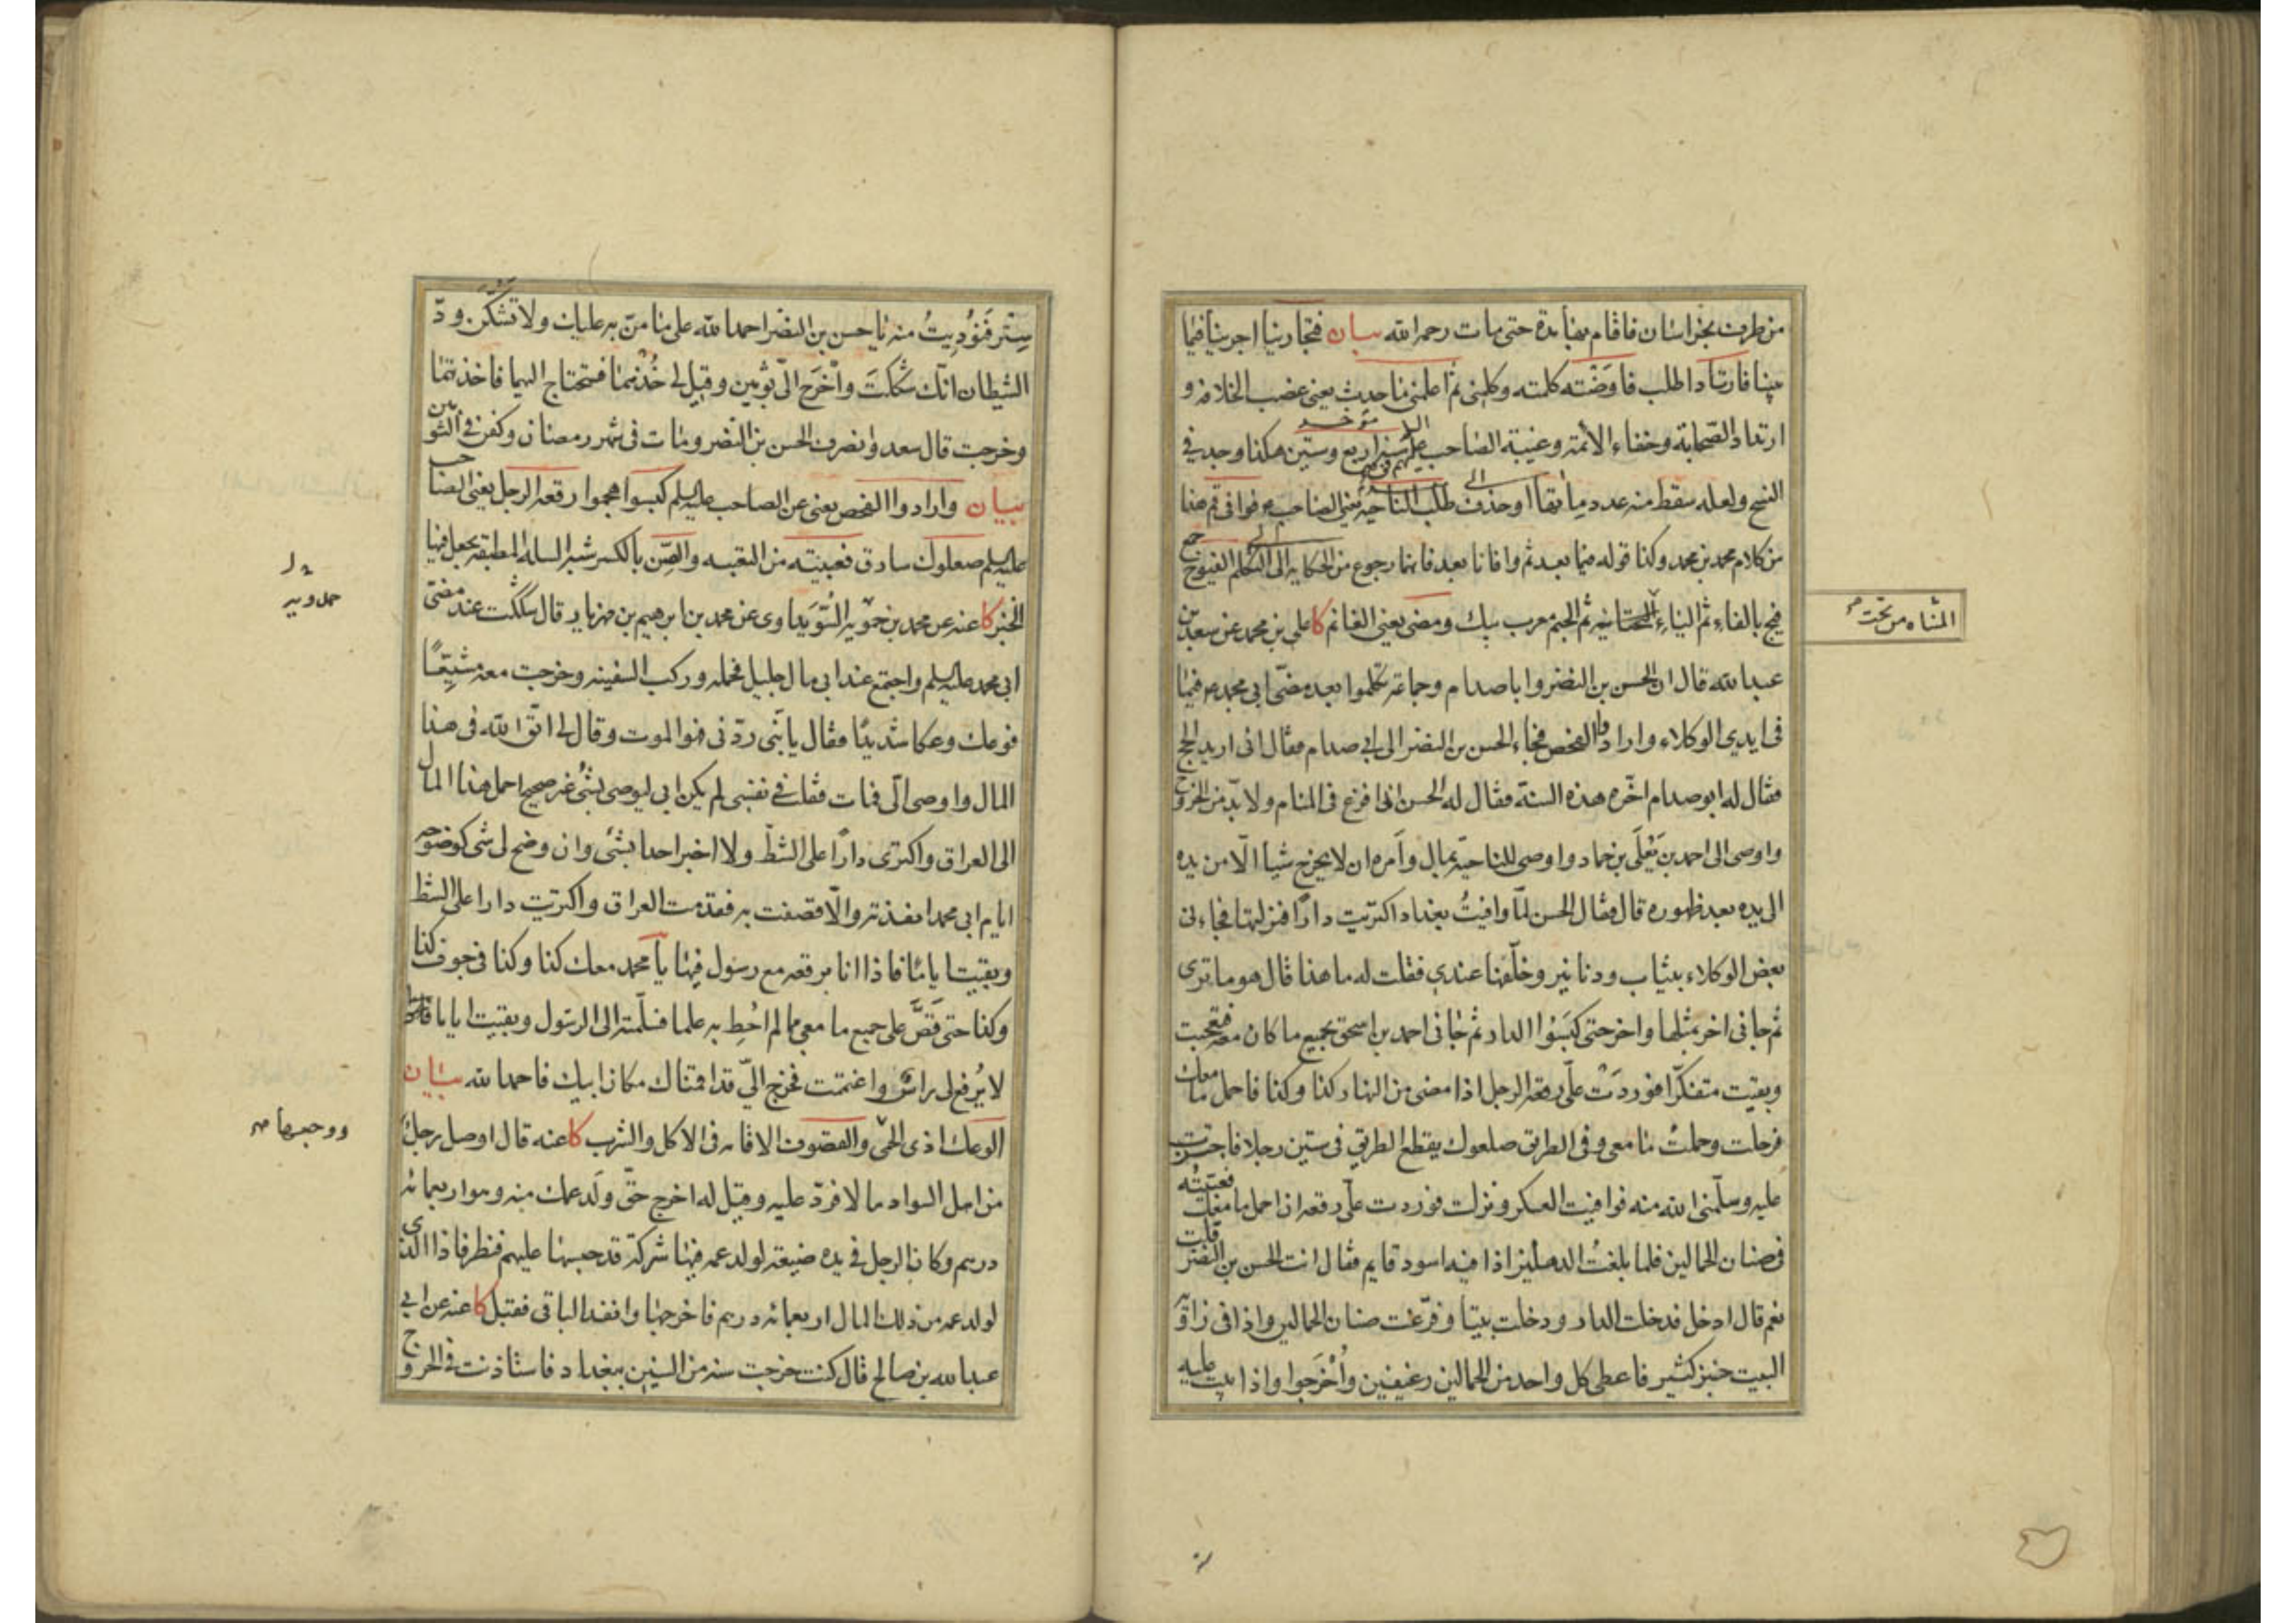 من طرف بخراسان فاقام بها مدة حتى مات رحمه الله بيان فتجارينا اجرينا فيما
بيننا فارتاد اطلب فاوضته كلمته وكلمنى ثم اعلمنى ما حدث يعنى غصب الخلافة و
ارتداد الصحابة وخفاء الائمة وغيبة الصاحب عليهم السلام سنة اربع وستين هكذا وجد في
النسخ ولعله سقط منه عدد مأتها او حذف طلب الناحية يعني الصاحب ع فوافى قم هذا
من كلام محمد بن محمد وكذا قوله فيما بعد ثم وافانا بعد فانهما رجوع من الحكاية الى التكلم الفيوج جمع
فيج بالفاء ثم الياء التحتانية ثم الجيم معرب بيك ومضى يعني الغانم كا على بن محمد عن سعد بن
المثناة من تحت
عبد الله قال ان الحسن بن النضر وابا صدام وجماعة تكلموا بعد مضى ابي محمد ع فيما
فى ايدي الوكلاء وارادوا الفحص فجاء الحسن بن النضر الى ابي صدام فقال انى اريد الحج
فقال له ابو صدام اخره هذه السنة فقال له الحسن انى افزع فى المنام ولا بد من الخروج
واوصى الى احمد بن يعلى بن حماد واوصى للناحية بمال وامره ان لا يخرج شيأ الا من يده
الى يده بعد ظهوره قال فقال الحسن لما وافيت بغداد اكتريت دارا فنزلتها فجاءنى
بعض الوكلاء بثياب ودنانير وخلفها عندي فقلت له ما هذا قال هو ما ترى
ثم جاءنى اخر بمثلها واخر حتى كبسوا الدار ثم جاءنى احمد بن اسحق بجميع ما كان معه فتعجبت
وبقيت متفكرا فوردت على رقعة الرجل اذا مضى من النهار كذا وكذا فاحمل ما معك
فرحلت وحملت ما معى وفى الطريق صعلوك يقطع الطريق فى ستين رجلا فاجتزت
عليه وسلمنى الله منه فوافيت العسكر ونزلت فوردت على رقعة ان احمل ما معك فعبيته
فى صنان الحمالين فلما بلغت الدهليز اذا فيه اسود قايم فقال انت الحسن بن النضر قلت
نعم قال ادخل فدخلت الدار ودخلت بيتا وفرغت صنان الحمالين واذا فى زاوية
البيت خبز كثير فاعطى كل واحد من الحمالين رغيفين واخرجوا واذا بيت عليه
ستر فنوديت منه يا حسن بن النضر احمد الله على ما من به عليك ولا تشكن ود
الشيطان انك شككت واخرج الى ثوبين وقيل لى خذهما فستحتاج اليهما فاخذتهما
وخرجت قال سعد وانصرف الحسن بن النضر ومات فى شهر رمضان وكفن فى الثوبين
بيان وارادوا الفحص يعنى عن الصاحب عليه السلم كبسوا هجموا رقعة الرجل يعنى الصاحب
عليه السلم صعلوك سارق فعبيته من التعبية والصن بالكسر شبه السلة المطبقة يجعل فيها
الخبز كا عنه عن محمد بن حمويه السويداوى عن محمد بن ابرهيم بن مهزيار قال شككت عند مضى
حمدويه
ابى محمد عليه السلم واجتمع عند ابى مال جليل فحمله وركب السفينه وخرجت معه مشيعا
فوعك وعكا شديدا فقال يا بنى ردنى فهو الموت وقال لى اتق الله فى هذا
المال واوصى الى فمات فقلت فى نفسى لم يكن ابى ليوصى بشئ غير صحيح احمل هذا المال
الى العراق واكترى دارا على الشط ولا اخبر احدا بشئ وان وضح لى شئ كوضوحه
ايام ابى محمد انفذته والا قصفت به فقدمت العراق واكتريت دارا على الشط
وبقيت اياما فاذا انا برقعة مع رسول فيها يا محمد معك كذا وكذا فى جوف كذا
وكذا حتى قص على جميع ما معى مما لم احط به علما فسلمته الى الرسول وبقيت اياما
لا يرفع لى رأس واغتممت فخرج الى قد اقمناك مكان ابيك فاحمد الله بيان
الوعك اذى الحمى والقصوف الاقامة فى الاكل والشرب كا عنه قال اوصل رجل
من اهل السواد مالا فرد عليه وقيل له اخرج حق ولد عمك منه وهو اربعمائة
درهم وكان الرجل فى يده ضيعة لولد عمه فيها شركة قد حبسها عليهم فنظر فاذا الذى
لولد عمه من ذلك المال اربعمائة درهم فاخرجها وانفذ الباقى فقبل كا عنه عن ابى
عبد الله بن صالح قال كنت خرجت سنة من السنين ببغداد فاستاذنت فى الخروج